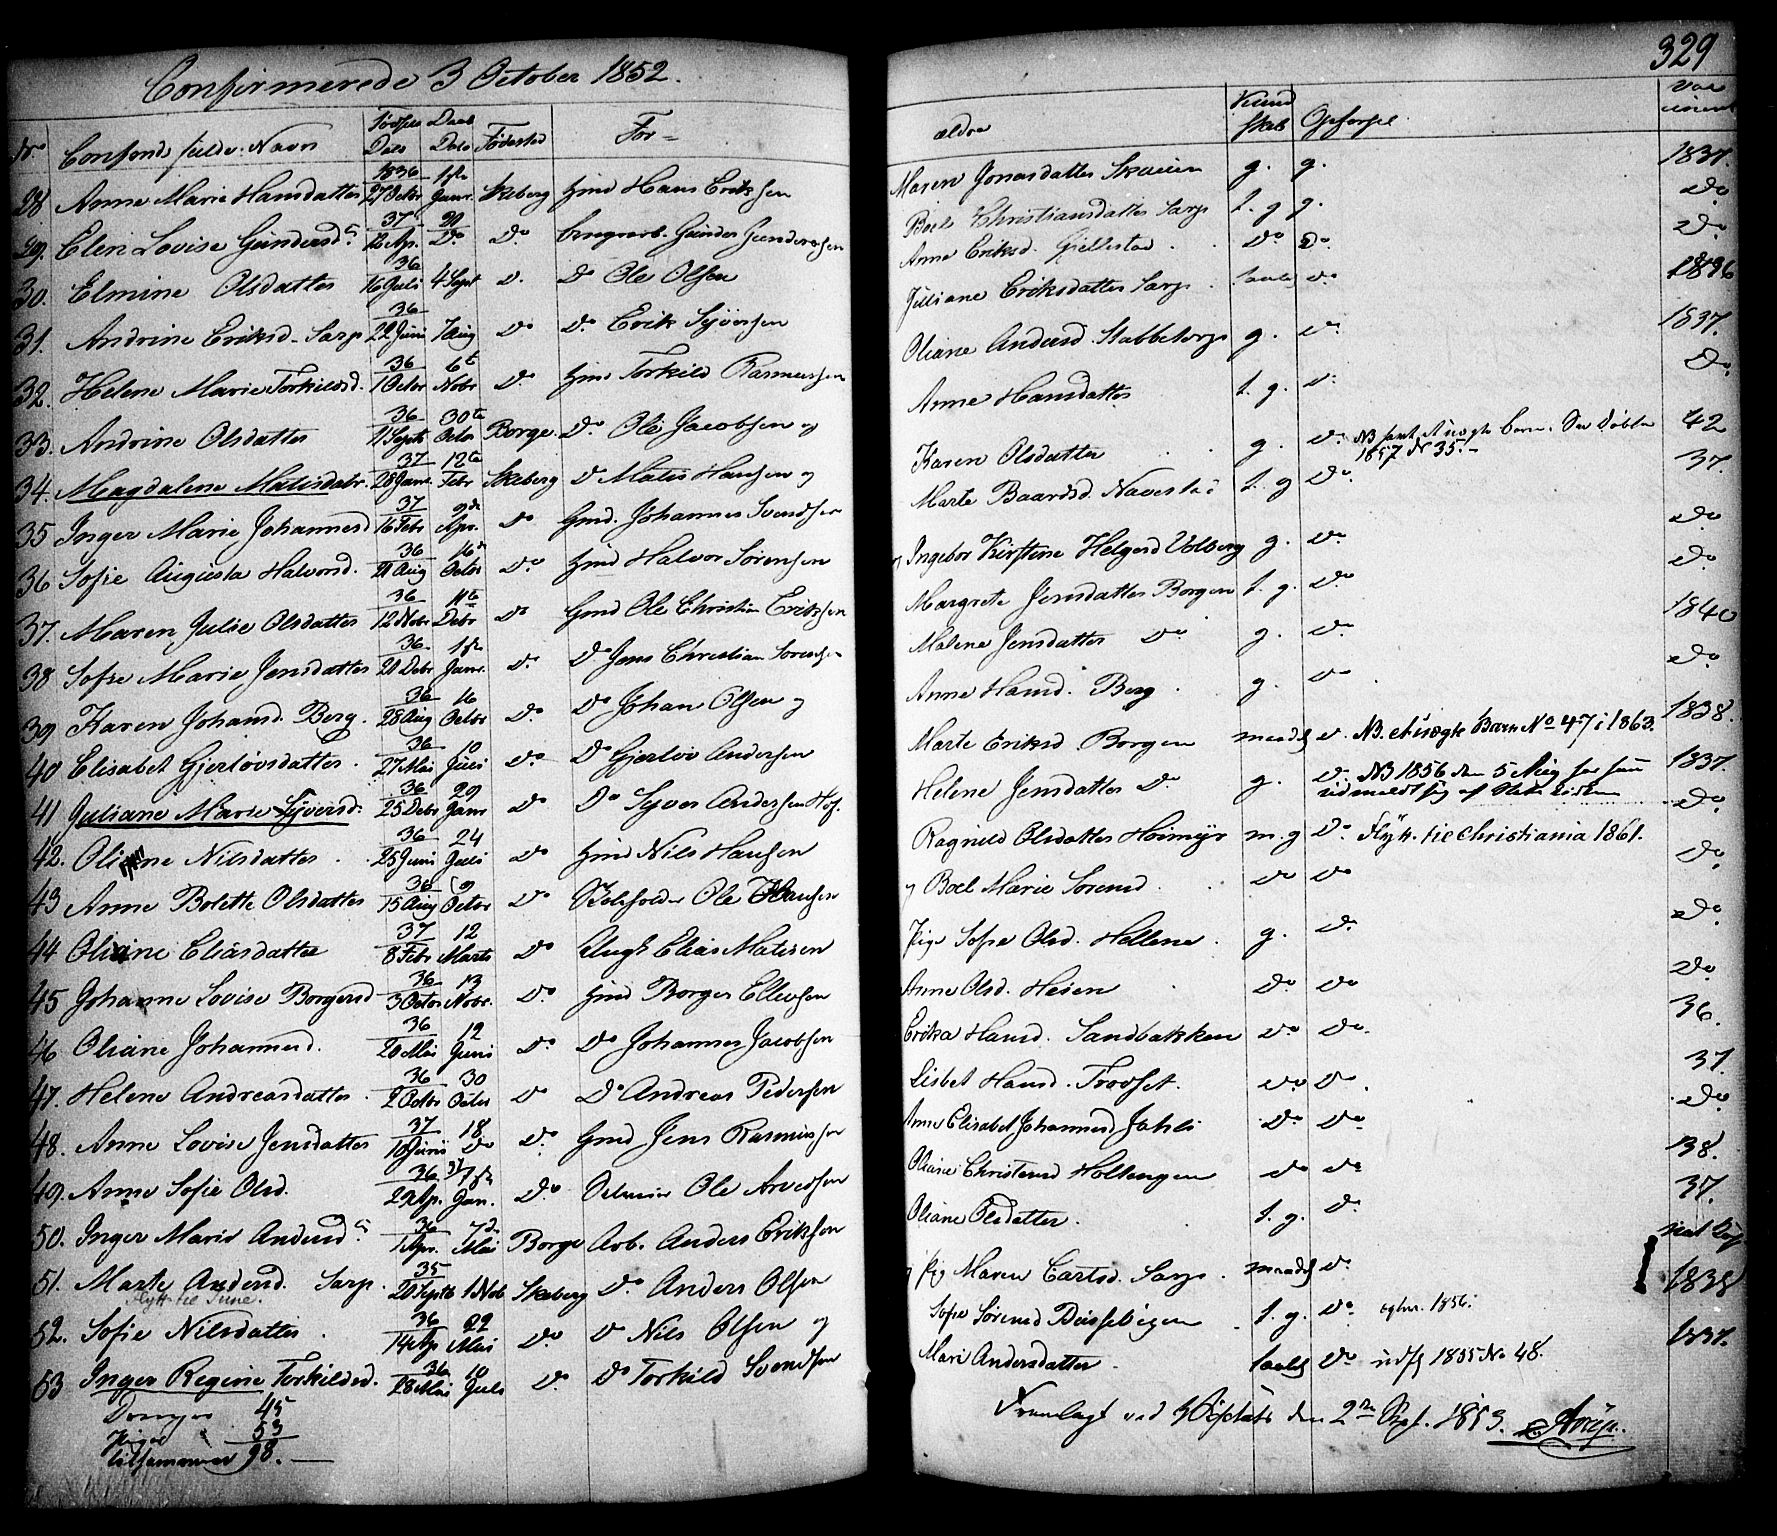 329
Confirmerede 3 October 1852.
No Navn Fødsels Dato Daab Dato Fødested For-
ældre Kund skab Opførsel
28 Anne Marie Hansdatter 1836 27 Octbr 1ste Janr. Skeberg Hmd Hans Eriksen
Maren Jonasdatter g. g. 1837.
29. Elen Lovise Gundersd. 37 12 Ap. Do Do Gunder Gundersen
Boel Christiansdatter Sarp t. g g. Do
30. Elmine Olsdatter 36 16 Juli 4 Sept D. Do Ole Olsen
Anne Eriksd. Gjellestad Do Do. Do
31. Andrine Eriksd. Sarp 36 22 Juni 7 Aug Do Do. Erik Syversen
Juliane Eriksdatter Sarp Do 1836
32. Helene Marie Torkildsd. 36 1 Octbr 6te Nobr Do Hmd Torkild Rasmussen
Oliane Andersd Stabbetorp g. Do 1837.
33. Andrine Olsdatter 36 11 Septb 30te Octbr Borge. Do Ole Jacobsen og
Anne Hansdatter t. g. Do Do
34. Magdalene Matisdatr. 37 28 Janr. 12te Febr Skeberg Do Matis Hansen og
Karen Olsdatter g. Do NB født et uægte barn. See døbte 1857 No 35. 42
35 Inger Marie Johannesd 37 16 Febr 9de Apr. Do Gmd. Johannes Svendsen
Marte Baardsd. Navestad t. g Do. 37.
36 Sofie Augusta Halvorsd. 36 21 Aug 16 Octbr Do Hmd Halvor Sørensen
Ingebor Kirstine Helgesd Valberg g. Do Do
37. Maren Julie Olsdatter 36 12 Nobr 11te Debr Do Gmd Ole Christian Eriksen
Margrete Jensdatter Borgen t. g. Do Do
38 Sofie Marie Jensdatter 36 21 Debr 1ste Janr. Do Do Jens Christian Sørensen
Malene Jensdatter Do g. Do 1840
39 Karen Johansd. Berg. 36 28 Aug 16 Octbr Do Do Johan Olsen og
Anne Hansd. Berg g. Do Do
40 Elisabet Gjerløvsdatter. 36 27 Mai 10 Juli Do Do Gjerløv Andersen
Marte Eriksd. Borgen maadl Do NB. et uægte Barn No 47 i 1863. 1838.
41 Juliane Marie Syversd. 36 25 Debr 29 Janr Do Do Syver Andersen
Helene Jensdatter Do g. Do NB 1856 den 5 Aug har hun udmeldt sig af Statskirken 1837.
42. Nilsdatter 36 25 Juni 24 Juli Do Hmd Nils Hansen
Ragnild Olsdatter m. g Do Flytt. til Christiania 1861. Do
43 Anne Bolette Olsdatter 36 15 Aug 9 Octbr Do Ole Hansen
og Boel Marie Sørensd. Do Do Do
44 Oliane Eliasdatter 37 8 Febr 12 Marts Do Ungk Elias Matisen
Pige Sofie Olsd. Hellene g. Do Do
45 Johanne Lovise Borgersd 36 3 Octbr 13 Nobr. Do Hmd Borger Ellevsen
Anne Olsd. Do Do Do
46 Oliane Johannesd. 36 20 Mai 12 Juni Do Do Johannes Jacobsen
Erika Hansd. Sandbakken Do Do 36.
47. Helene Andreasdatter. 36 2 Octbr 30 Octbr Do Do Andreas Pedersen
Lisbet Hansd. Do Do. 37.
48. Anne Lovise Jensdatter 37 10 Juni 18 Do Do Gmd Jens Rasmussen
Anne Elisabet Johannesd Do Do Do
49. Anne Sofie Olsd. 36 29 Ap. 37 1ste Jan. Do Ole Arvesen
Oliane Christensd Holtengen Do Do 38.
50. Inger Marie Andersd. 36 1 Apr. 7de Mai Borge Arb. Anders Eriksen
Oliane Olsdatter. t. g. Do 37.
51. Marte Andersd. Sarp. 35 20 Septb 1 Nob Skeberg Do Anders Olsen
Flytt. til Tune.
Pig Maren Larsd. Sarp. maadl Do
52. Sofie Nilsdatter 36 14 Ap 22 Mai Do Do Nils Olsen og
Sofie Sørensd t. g. Do 1856. 1838
53 Inger Regine Torkildsd. 36 28 Mai 10 Juli Do Do Torkild Svendsen
Mari Andersdatter. Do udfl 1855 No 48. 1837.
Drenge 45
Piger 53
tilsammen 98.
Fremlagt ved den 2den Sept. 1853.